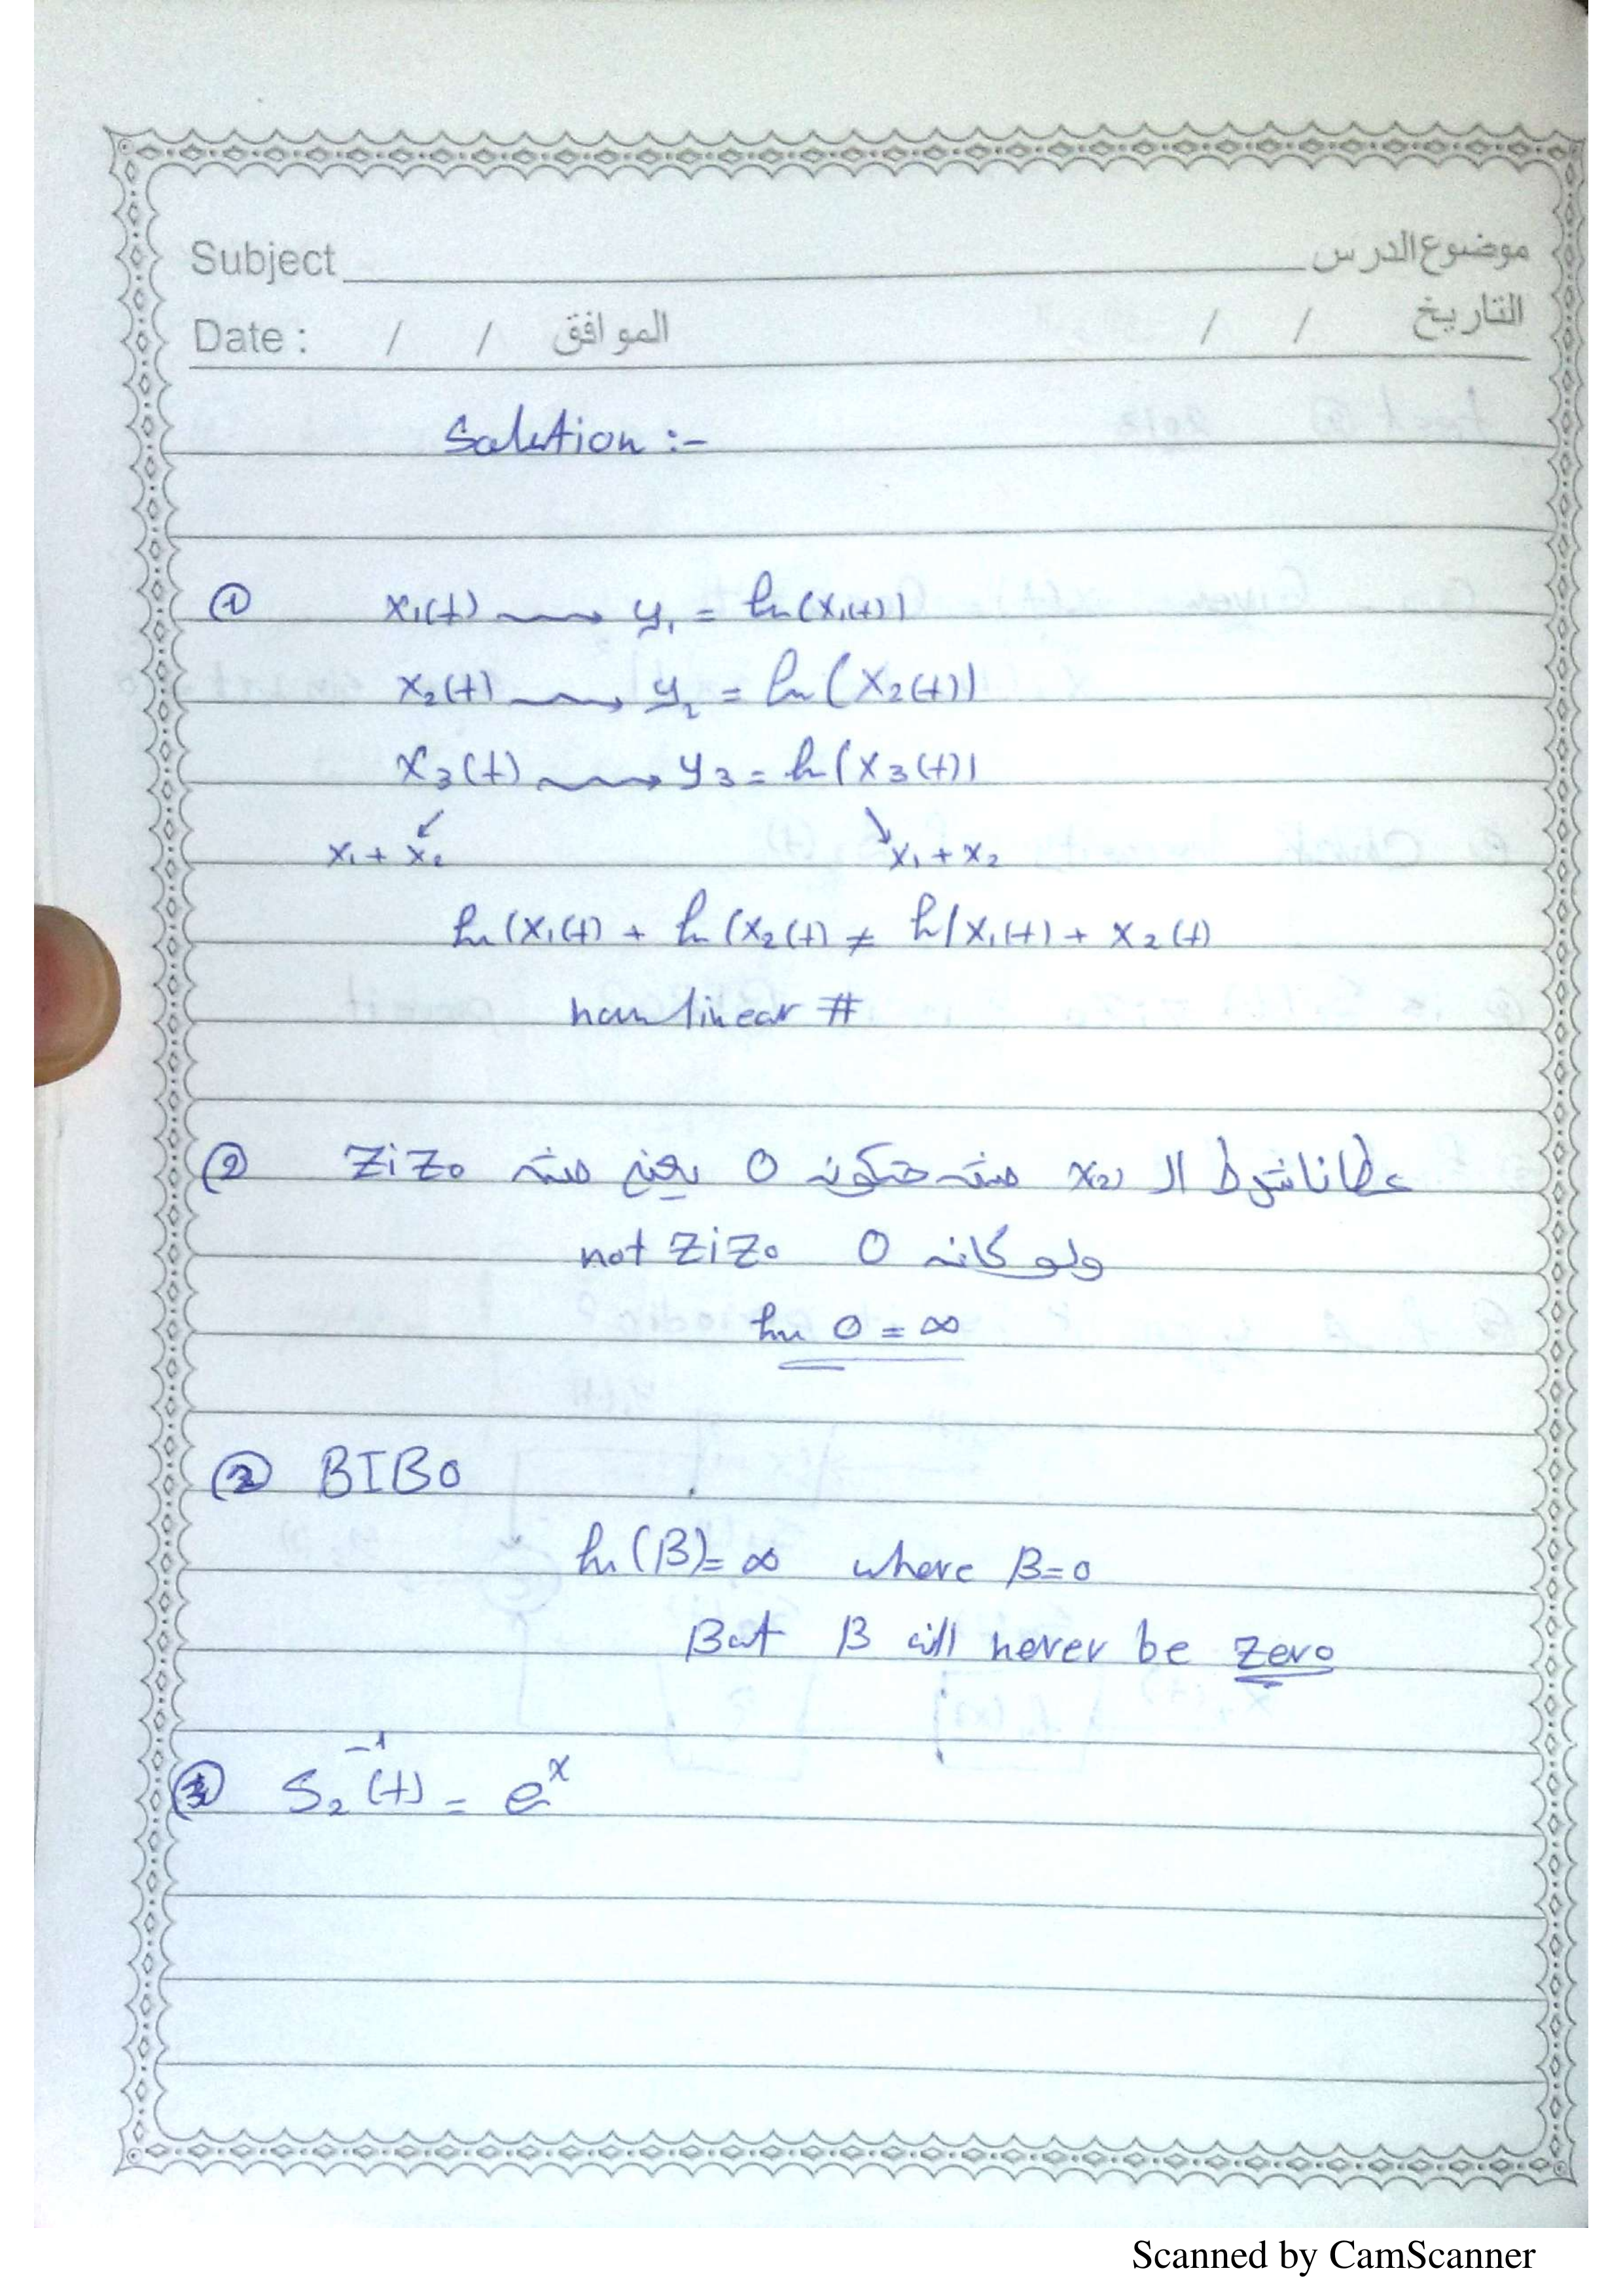 Subject موضوع الدرس
Date : / / الموافق / / التاريخ
Solution :-
① x₁(t) ⟿ y₁ = ln(x₁(t))
x₂(t) ⟿ y₂ = ln(x₂(t))
x₃(t) ⟿ y₃ = ln(x₃(t))
↙ ↘
x₁ + x₂ x₁ + x₂
ln(x₁(t) + ln(x₂(t) ≠ ln(x₁(t) + x₂(t)
non linear #
② عطانا شرط ال x₂) مش حتكون 0 يعني مش ZiZo
ولو كانت 0 not ZiZo
ln 0 = ∞
② BIBO
ln(B) = ∞ where B=0
But B will never be zero
S₂⁻¹(t) = eˣ
Scanned by CamScanner